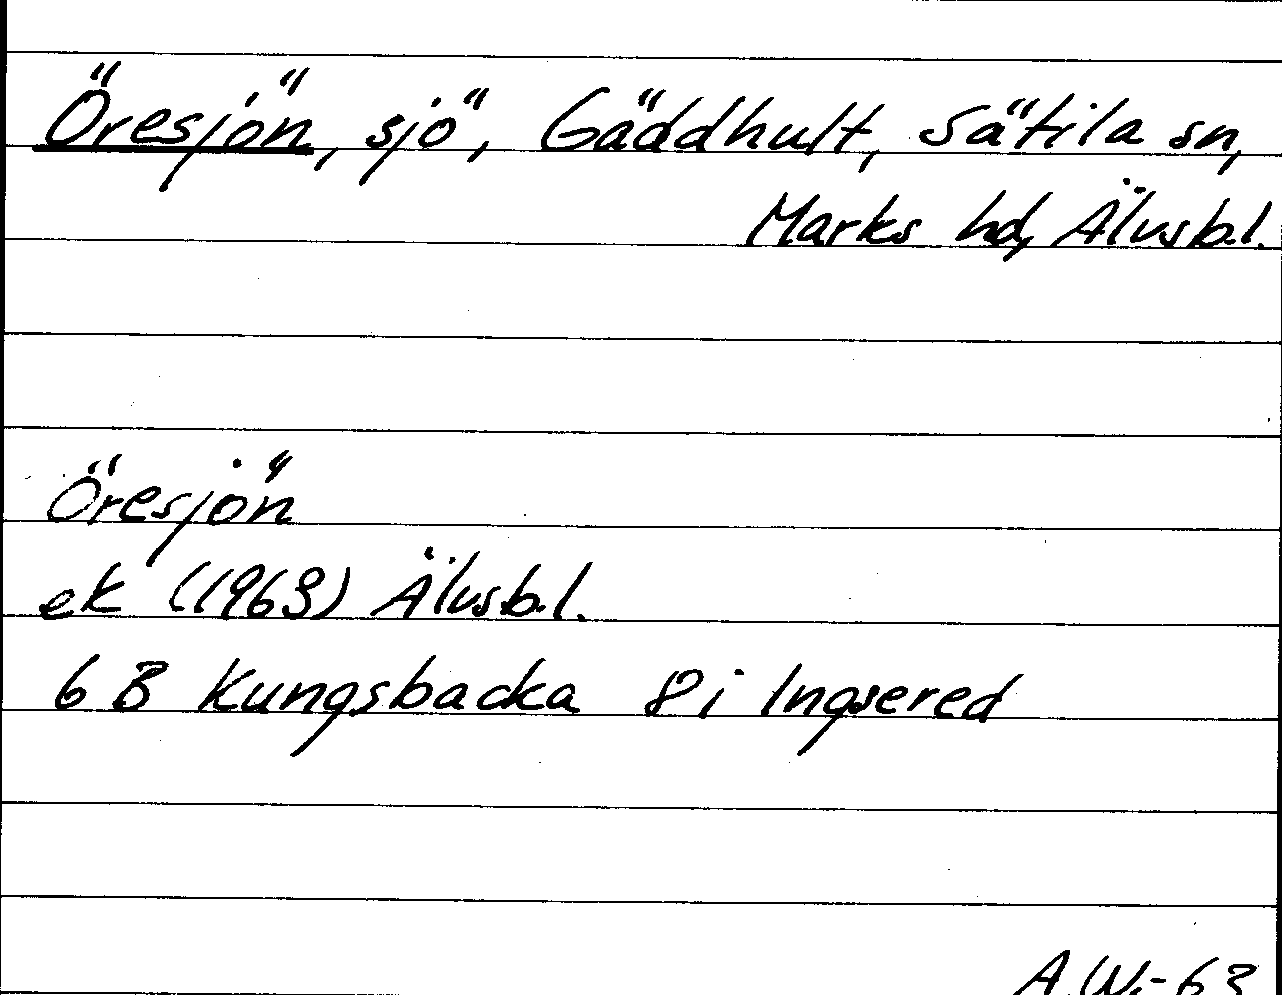 Öresjön, sjö, Gäddhult, Sätila sn,
Marks hd, Älvsb.l.
Öresjön
ek (1963) Älvsb.l.
6 B Kungsbacka 8 i Ingsered
A.W.-63